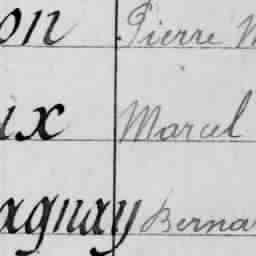 on Pierre M
ux Marcel
agnay Berna